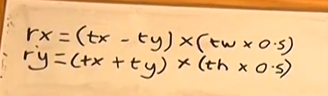 rx = (tx - ty) × (tw × 0.5)
ry = (tx + ty) × (th × 0.5)